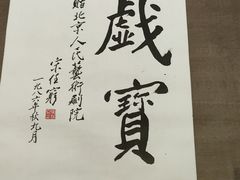 戯寶
北京人民藝術劇院
宋任窮
一九八六年秋九月